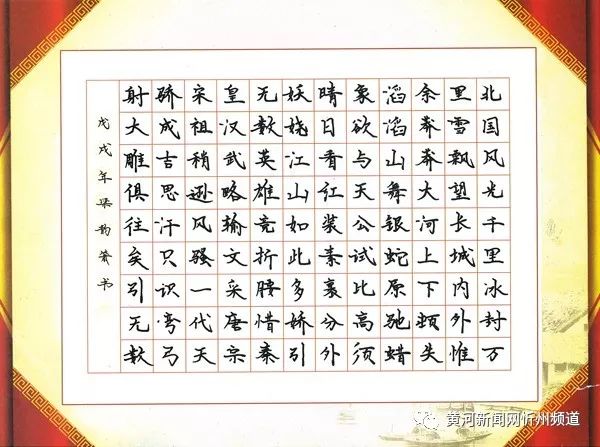 北国风光千里冰封万
里雪飘望长城内外惟
余莽莽大河上下顿失
滔滔山舞银蛇原驰蜡
象欲与天公试比高须
晴日看红装素裹分外
妖娆江山如此多娇引
无数英雄竞折腰惜秦
皇汉武略输文采唐宗
宋祖稍逊风骚一代天
骄成吉思汗只识弯弓
射大雕俱往矣引无数
戊戌年梁韵书
黄河新闻网忻州频道